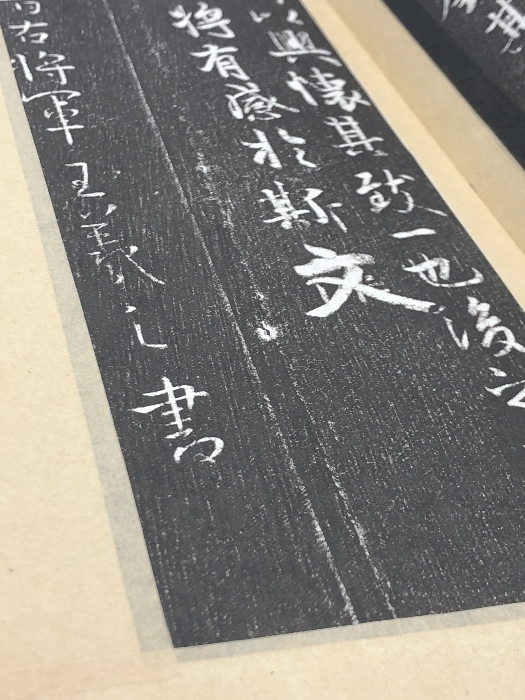 以興懷其致一也後之
將有感於斯文
右將軍王羲之書